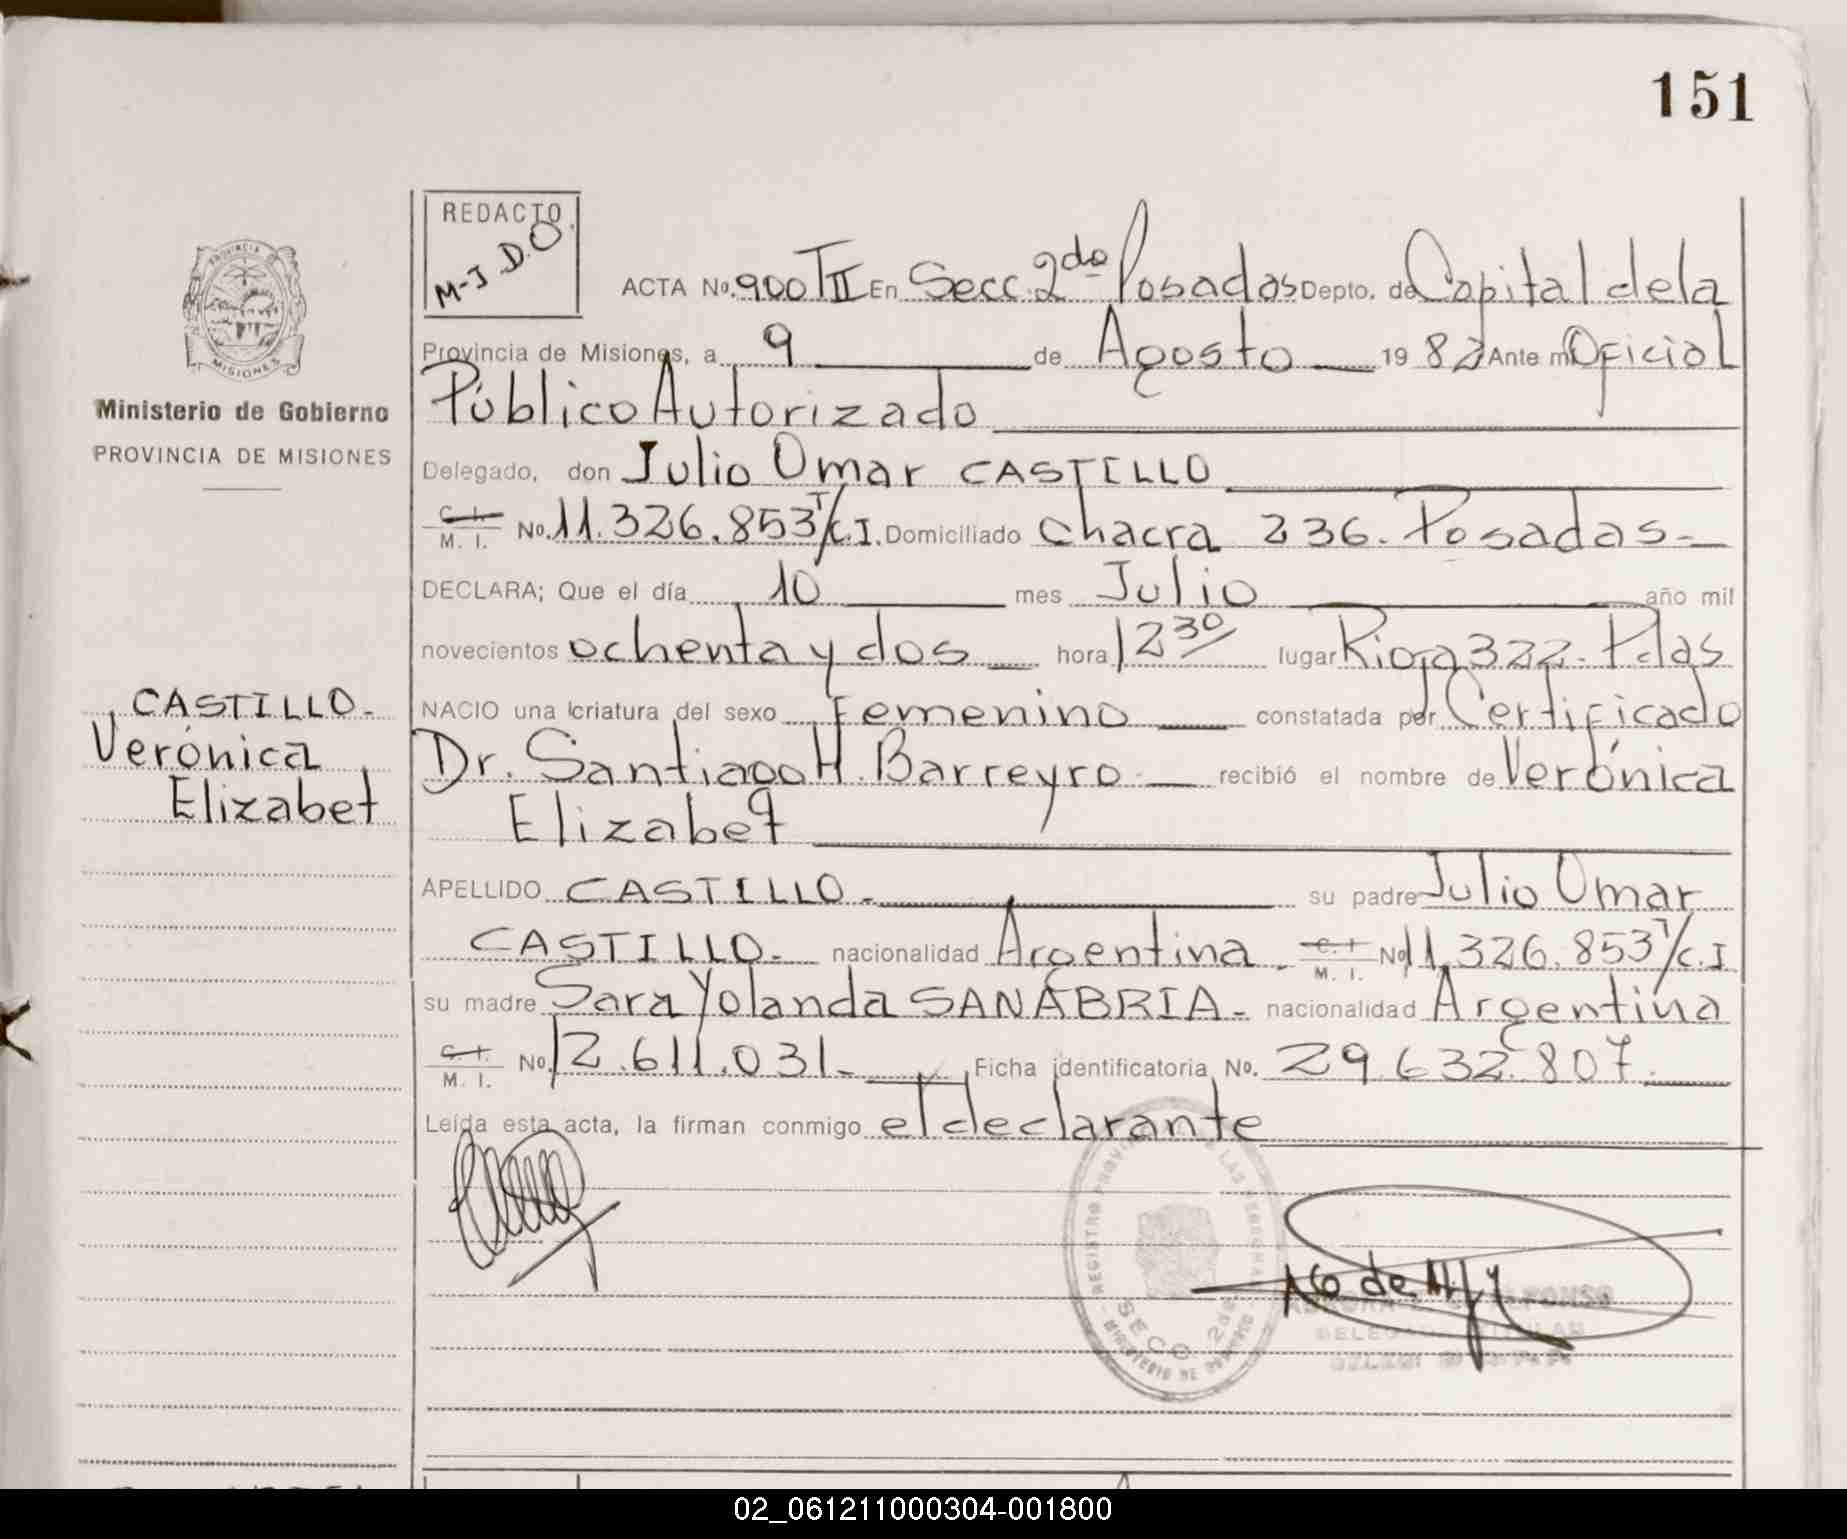 151
REDACTO
M-J.D.O.
PROVINCIA
MISIONES
Ministerio de Gobierno
PROVINCIA DE MISIONES
CASTILLO-
Verónica
Elizabet
ACTA No. 900 TII En Secc. 2da Posadas Depto. de Capital de la
Provincia de Misiones, a 9 de Agosto 1982 Ante mi Oficial
Público Autorizado
Delegado, don Julio Omar CASTILLO
C. I. M. I. No. 11.326.853 T/C.I. Domiciliado Chacra 236. Posadas.-
DECLARA; Que el día 10 mes Julio año mil
novecientos ochenta y dos hora 12 30 lugar Rioja 322. Pdas
NACIO una criatura del sexo Femenino constatada por Certificado
Dr. Santiago H. Barreyro recibió el nombre de Verónica
Elizabet
APELLIDO CASTILLO.- su padre Julio Omar
CASTILLO.- nacionalidad Argentina. C. I. M. I. No 11.326.853 T/C.I
su madre Sara Yolanda SANABRIA- nacionalidad Argentina
C. I. M. I. No. 12.611.031.- Ficha identificatoria No. 29.632.807.
Leída esta acta, la firman conmigo el declarante
REGISTRO PROVINCIAL DE LAS PERSONAS
MINISTERIO DE GOBIERNO
SECC. 2da
02_061211000304-001800